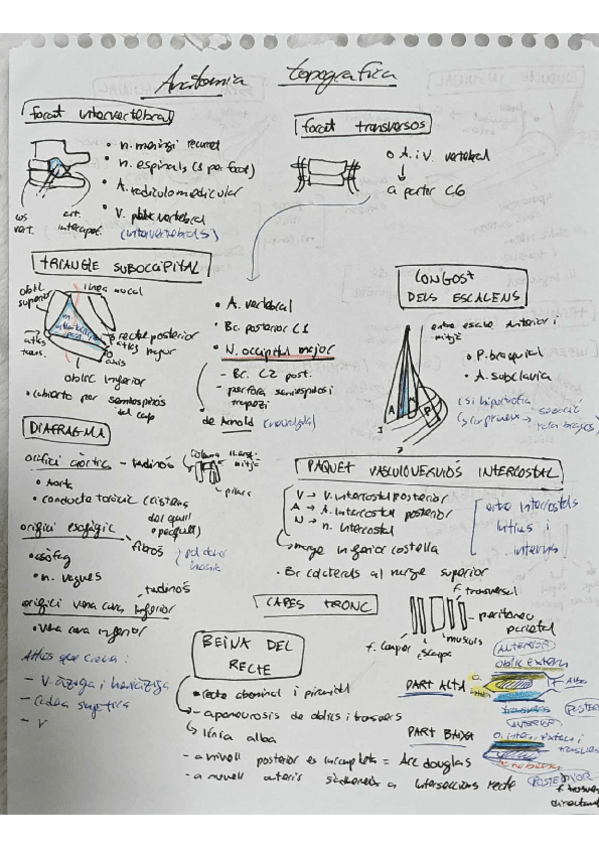 Anatomia topografica
forat intervertebral
• n. meningi recurret
• n. espinals (1 per forat)
• A. radiculomedular
• V. vertebral
(intervertebrals)
cos vert.
art. interapof.
forat transversos
A. i V. vertebral
a partir C6
TRIANGLE SUBOCCIPITAL
oblic superior
línea nucal
recte posterior major
atles trans.
axis
oblic inferior
• cubierto por semiespinós del cap
• A. vertebral
• Bc. posterior C1
• N. occipital major
- Bc. C2 post.
- perfora semiespinós i trapezi
de Arnold (neuralgia)
CONGOST DELS ESCALENS
entre escalè anterior i mitjà
• P. braquial
• A. subclavia
(si hipertrofia
A
M
P
DIAFRAGMA
orifici aòrtic - tendinós
columna
pilars
• Aorta
• conducte toràcic (cisterna del quill
orifici esofàgic
fibrós
• esòfag
• n. vagues
tendinós
orifici vena cava inferior
• vena cava inferior
Altres que creua:
- V. àziga i hemiàziga
- Cadena simpàtica
- V
PAQUET VASCULONERVIÓS INTERCOSTAL
V → V. intercostal posterior
A → A. intercostal posterior
N → n. intercostal
entre intercostals íntims i interns
marge inferior costella
• Br colaterals al marge superior
CAPES TRONC
f. transversal
peritoneu parietal
músculs
f. camper
scarpa
BEINA DEL RECTE
recte abdominal i piramidal
- aponeurosis de oblics i transvers
línia alba
- a nivell posterior es incompleta = Arc douglas
- a nivell anterior s'adhereix a interseccions recte
PART ALTA
ANTERIOR
oblic extern
POSTERIOR
PART BAIXA
ANTERIOR
O. intern, extern i transvers
POSTERIOR
f. transver